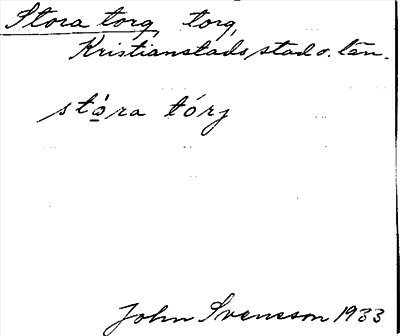 Stora torg, torg,
Kristianstads stad o. län.
stò̱ra tórj
John Svensson 1933